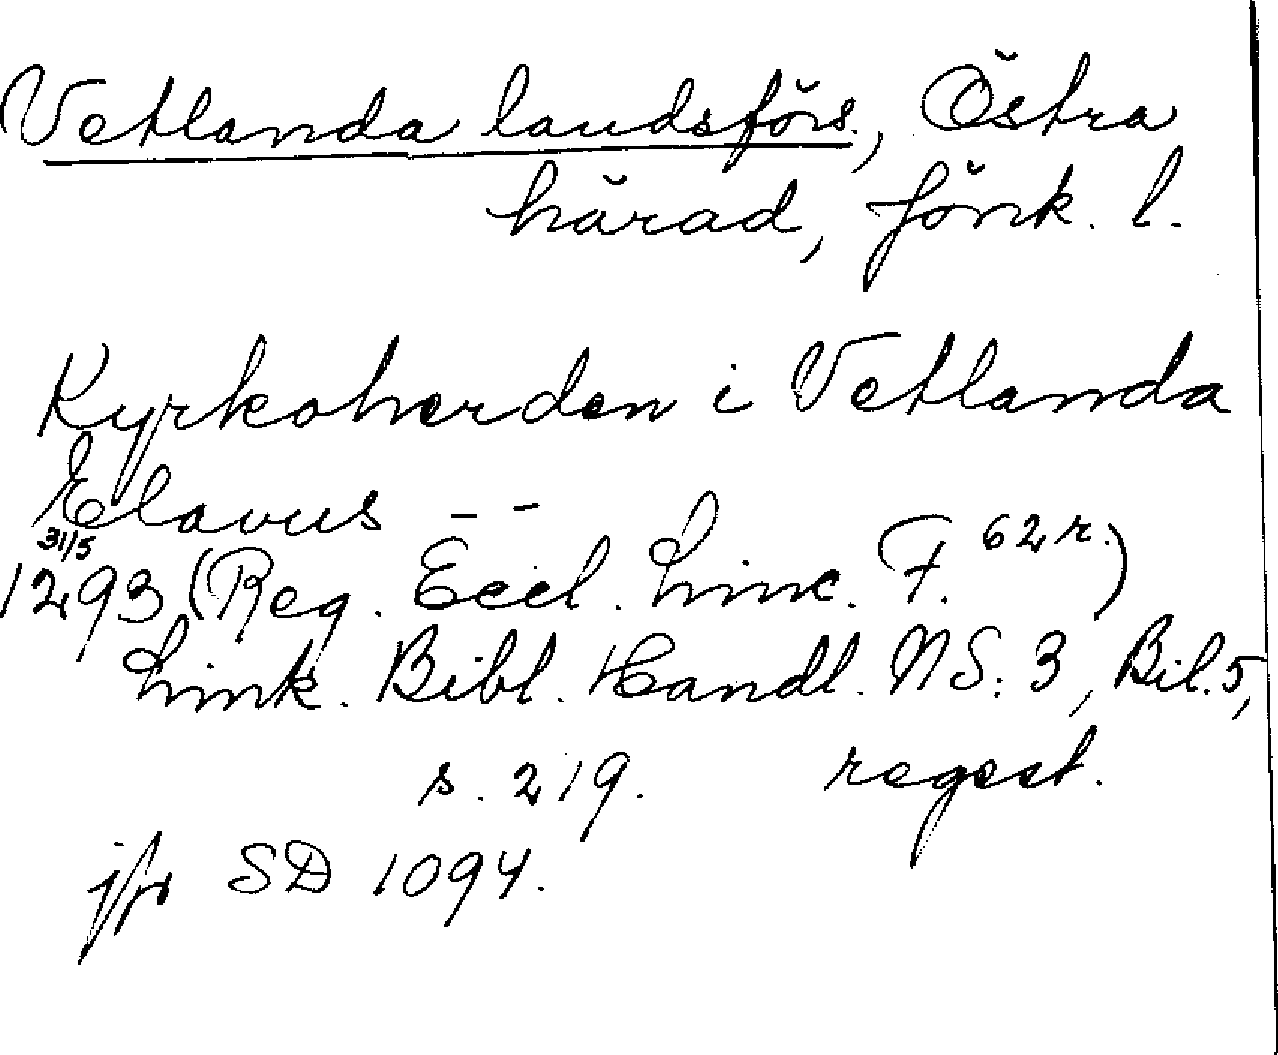 Vetlanda landsförs., Östra
härad, Jönk. l.
Kyrkoherden i Vetlanda
Elavus – –
31/5
1293 (Reg. Eccl. Linc. F. 62 r.)
Link. Bibl. Handl. NS: 3, Bil. 5,
s. 219. regest.
jfr SD 1094.